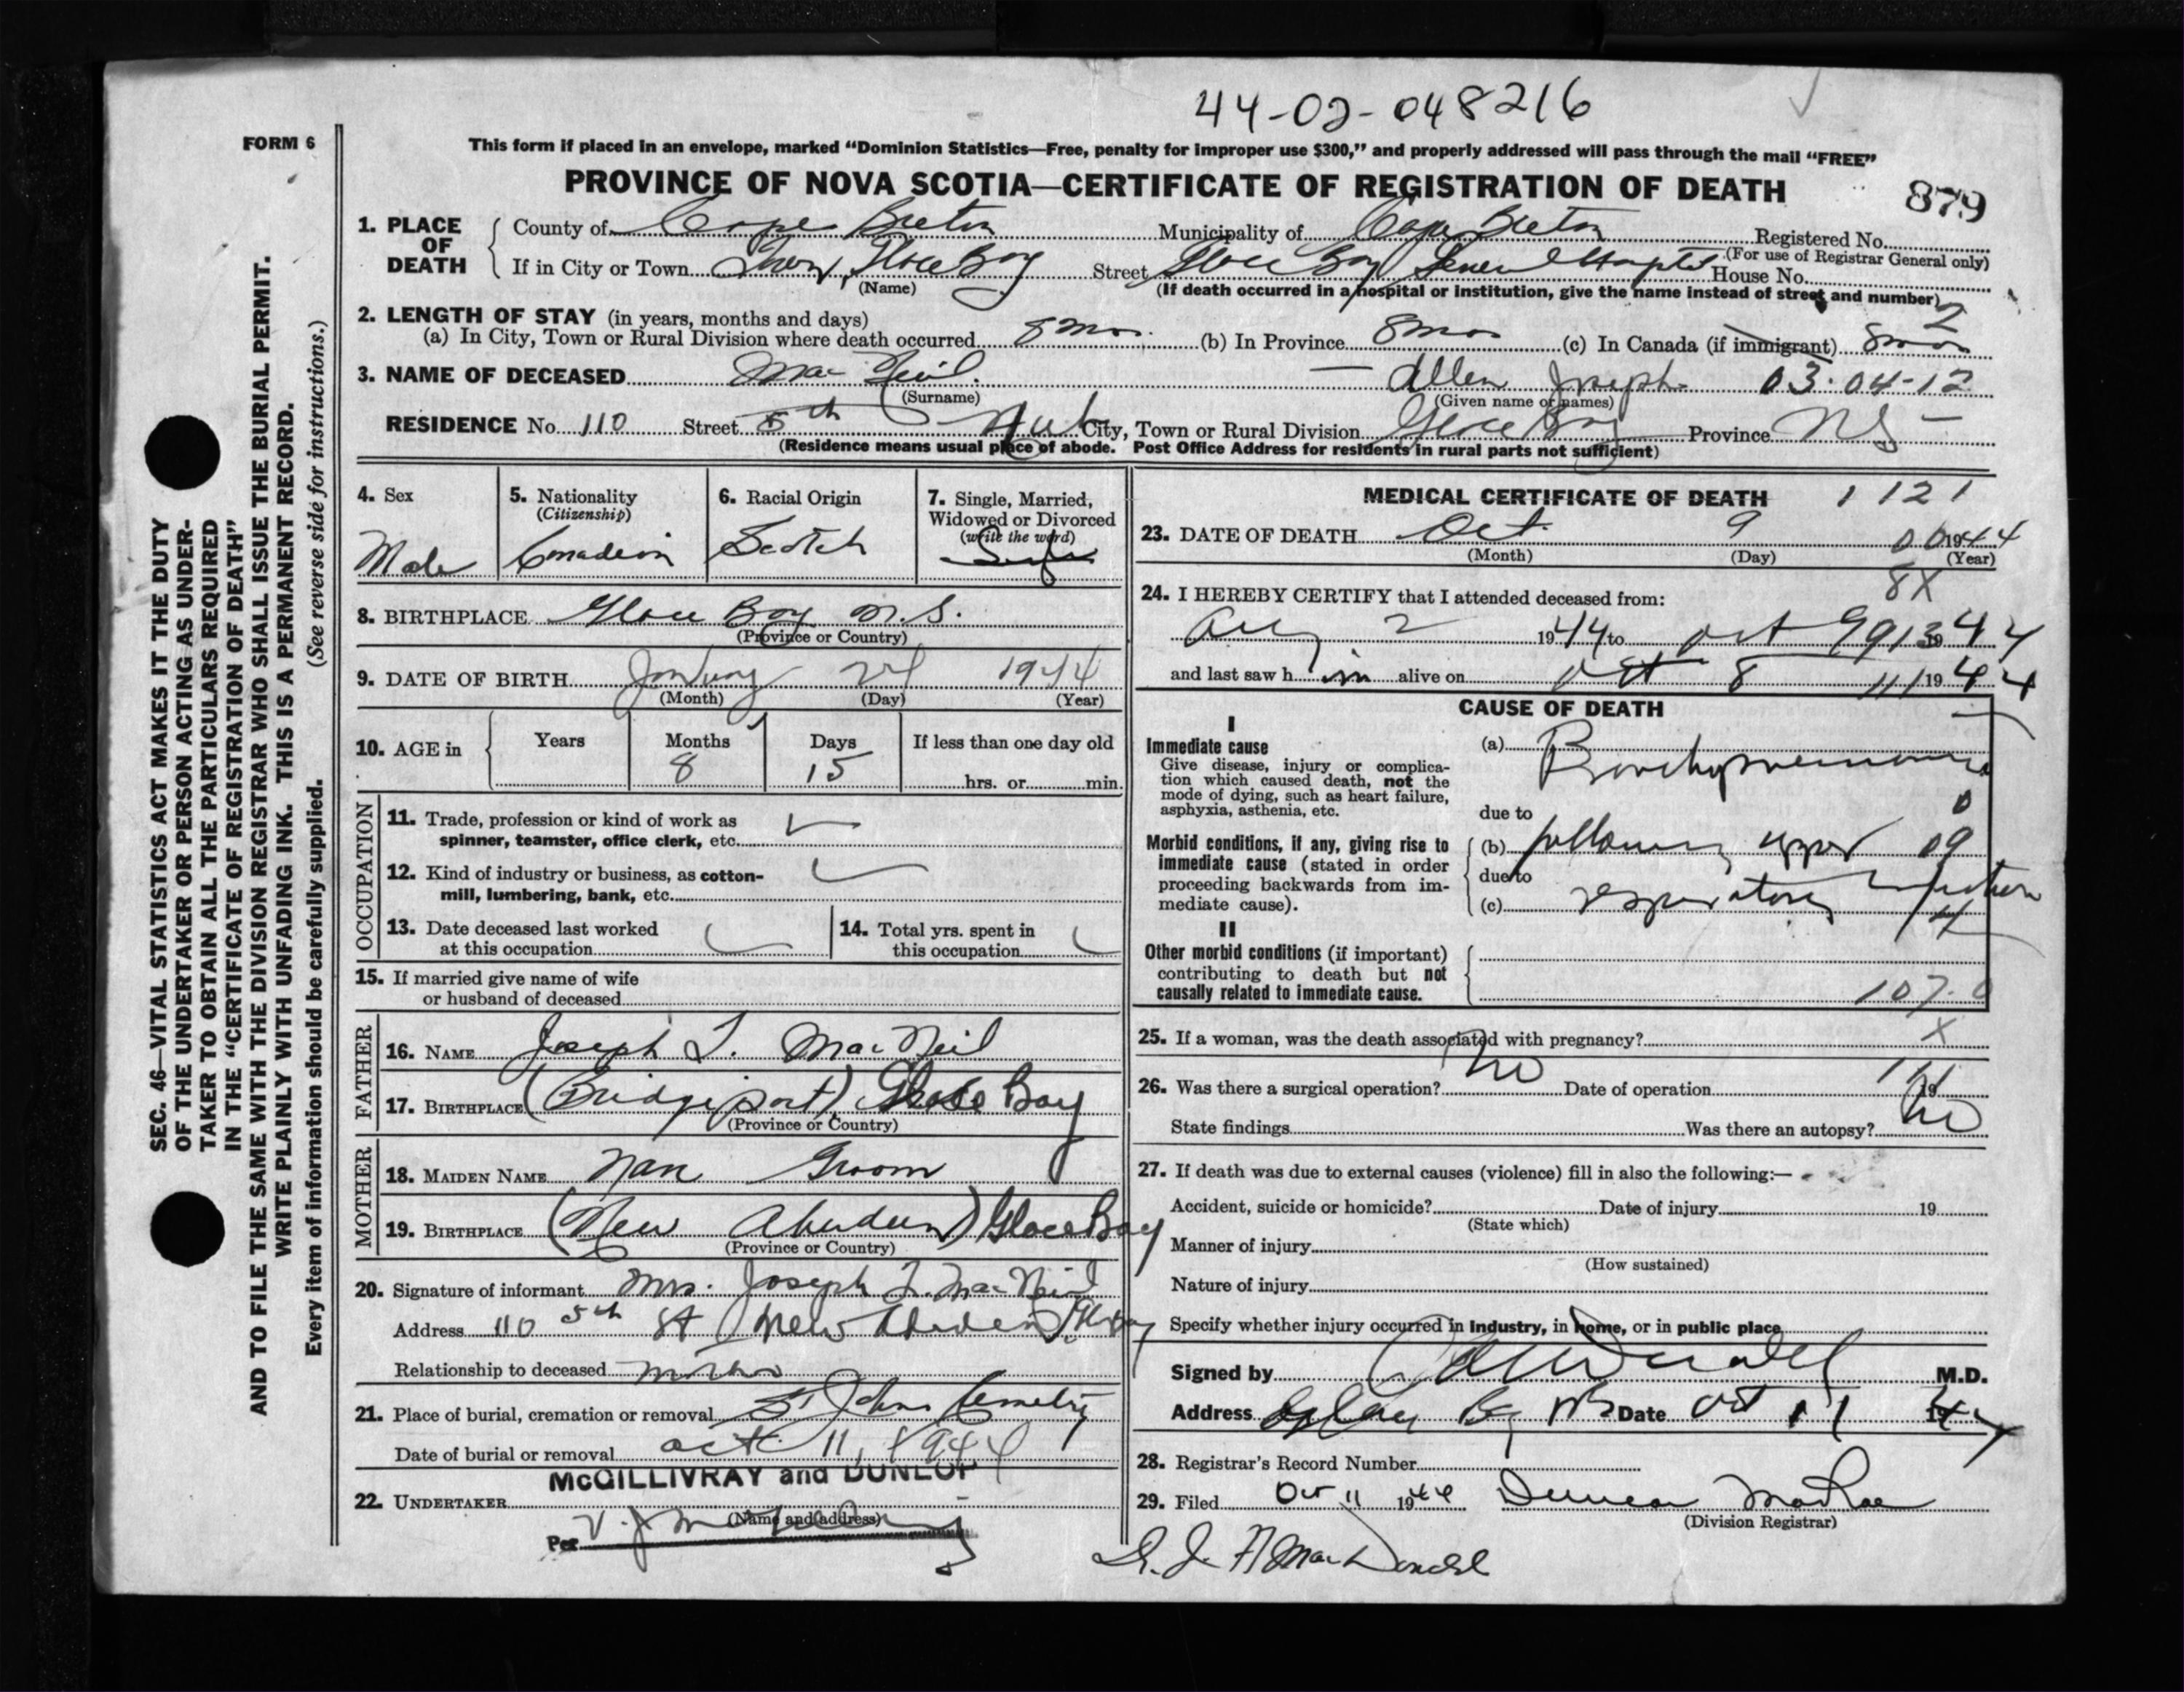 44-02-048216
FORM 6
This form if placed in an envelope, marked “Dominion Statistics—Free, penalty for improper use $300,” and properly addressed will pass through the mail “FREE”
PROVINCE OF NOVA SCOTIA—CERTIFICATE OF REGISTRATION OF DEATH
879
1. PLACE OF DEATH County of Cape Breton Municipality of Cape Breton Registered No.
(For use of Registrar General only)
If in City or Town Town, Glace Bay Street Glace Bay General Hospital House No.
(Name) (If death occurred in a hospital or institution, give the name instead of street and number)
2
2. LENGTH OF STAY (in years, months and days)
(a) In City, Town or Rural Division where death occurred 8 mos. (b) In Province 8 mos (c) In Canada (if immigrant) 8 mos
3. NAME OF DECEASED Mac Neil. — Allen Joseph 03-04-12
(Surname) (Given name or names)
RESIDENCE No. 110 Street 5th City, Town or Rural Division Glace Bay Province NS
(Residence means usual place of abode. Post Office Address for residents in rural parts not sufficient)
4. Sex Male
5. Nationality (Citizenship) Canadian
6. Racial Origin Scotch
7. Single, Married, Widowed or Divorced (write the word) Single
8. BIRTHPLACE Glace Bay N.S.
(Province or Country)
9. DATE OF BIRTH January 24 1944
(Month) (Day) (Year)
10. AGE in Years Months 8 Days 15 If less than one day old hrs. or min.
OCCUPATION
11. Trade, profession or kind of work as spinner, teamster, office clerk, etc.
12. Kind of industry or business, as cotton-mill, lumbering, bank, etc.
13. Date deceased last worked at this occupation
14. Total yrs. spent in this occupation
15. If married give name of wife or husband of deceased
FATHER
16. NAME Joseph L. Mac Neil
17. BIRTHPLACE (Bridgeport) Glace Bay
(Province or Country)
MOTHER
18. MAIDEN NAME Nan Groom
19. BIRTHPLACE (New Aberdeen) Glace Bay
(Province or Country)
20. Signature of informant Mrs. Joseph L. Mac Neil
Address 110 5th St New Aberdeen
Relationship to deceased mother
21. Place of burial, cremation or removal St Johns Cemetery
Date of burial or removal Oct. 11, 1944
McGILLIVRAY and DUNLOP
22. UNDERTAKER
(Name and address)
Per V. J.
MEDICAL CERTIFICATE OF DEATH 1121
23. DATE OF DEATH Oct. 9 00 1944
(Month) (Day) (Year)
8X
24. I HEREBY CERTIFY that I attended deceased from:
Aug 2 1944 to Oct 9 913 1944
and last saw h im alive on Oct 8 111 1944
CAUSE OF DEATH
I
Immediate cause
Give disease, injury or complication which caused death, not the mode of dying, such as heart failure, asphyxia, asthenia, etc.
(a) Bronchopneumonia
0
due to
Morbid conditions, if any, giving rise to immediate cause (stated in order proceeding backwards from immediate cause).
(b) following upper 09
due to
(c) respiratory infection
II
Other morbid conditions (if important) contributing to death but not causally related to immediate cause.
107.0
25. If a woman, was the death associated with pregnancy? X
26. Was there a surgical operation? No Date of operation 111 19
State findings Was there an autopsy? No
27. If death was due to external causes (violence) fill in also the following:—
Accident, suicide or homicide? Date of injury 19
(State which)
Manner of injury
(How sustained)
Nature of injury
Specify whether injury occurred in industry, in home, or in public place
Signed by M.D.
Address Glace Bay NS Date Oct 11 1944
28. Registrar's Record Number
29. Filed Oct 11 1944 Duncan MacRae
(Division Registrar)
Dr. J. A MacDonald
SEC. 46—VITAL STATISTICS ACT MAKES IT THE DUTY
OF THE UNDERTAKER OR PERSON ACTING AS UNDER-
TAKER TO OBTAIN ALL THE PARTICULARS REQUIRED
IN THE “CERTIFICATE OF REGISTRATION OF DEATH”
AND TO FILE THE SAME WITH THE DIVISION REGISTRAR WHO SHALL ISSUE THE BURIAL PERMIT.
WRITE PLAINLY WITH UNFADING INK. THIS IS A PERMANENT RECORD.
Every item of information should be carefully supplied. (See reverse side for instructions.)